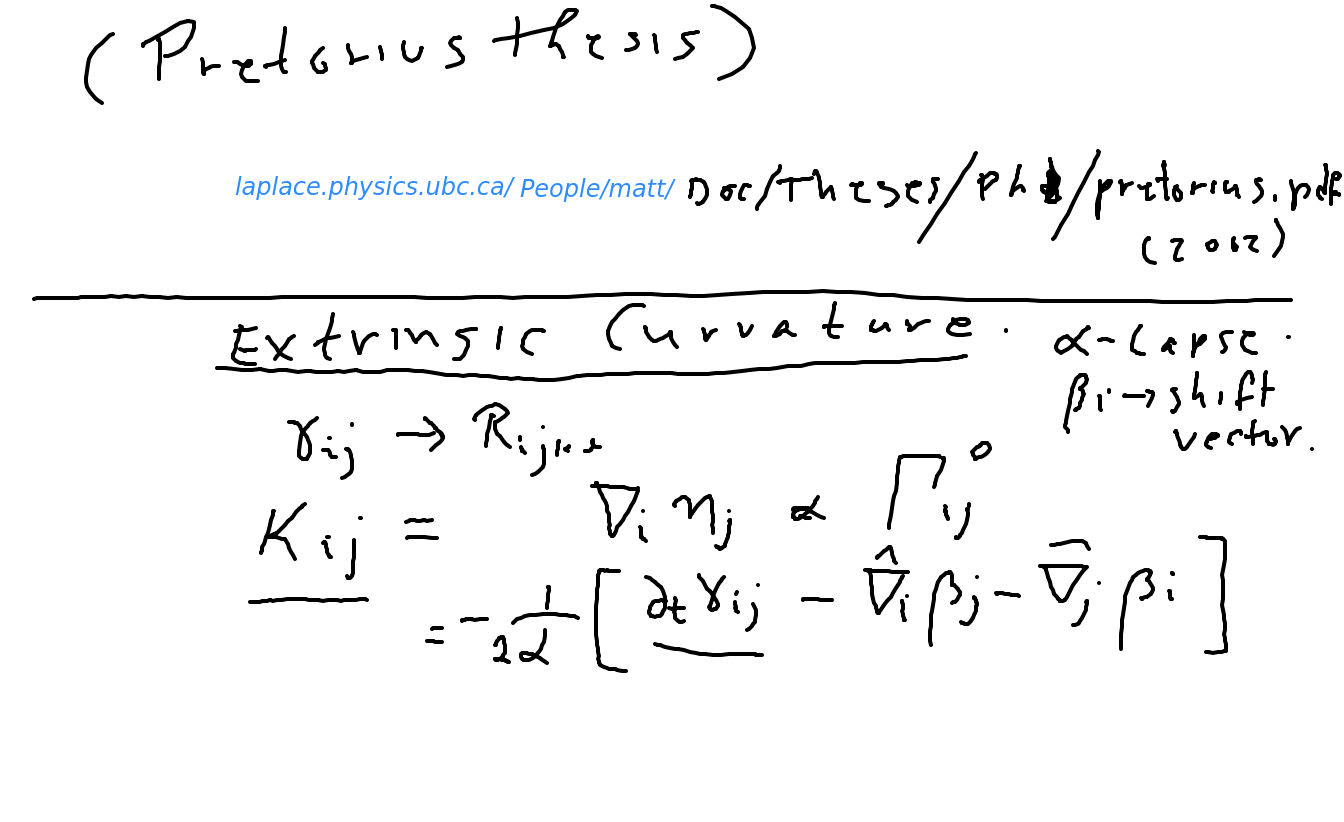 (Pretorius thesis)
laplace.physics.ubc.ca/ People/matt/ Doc/Theses/PhD/pretorius.pdf
(2012)
Extrinsic Curvature.
α-lapse.
βi → shift
vector.
γij → Rijkl
Kij = ∇i ηj ∝ Γ⁰ij
= -1/2α [∂tγij - ∇̂i βj - ∇̂j βi]